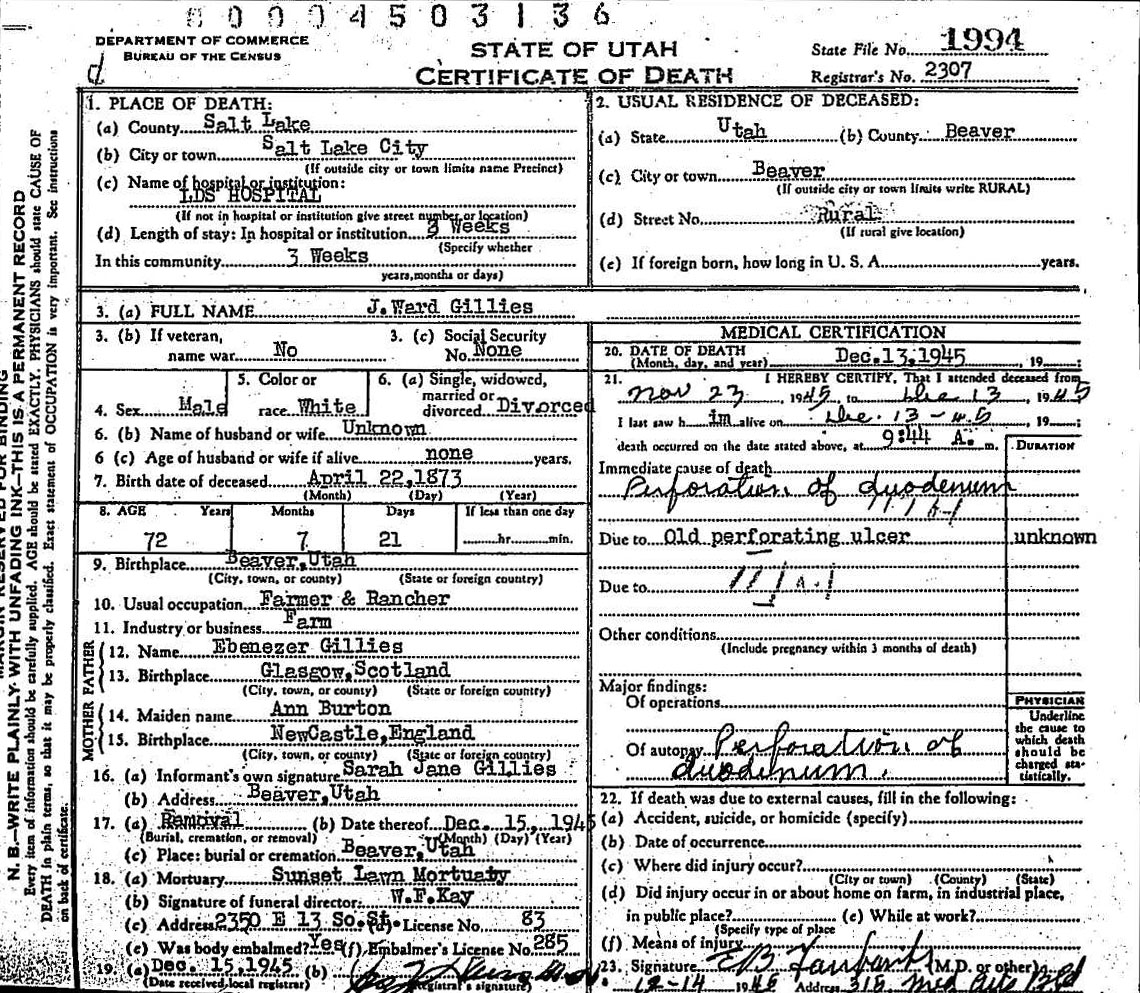 0 0 0 4 5 0 3 1 3 6
DEPARTMENT OF COMMERCE
BUREAU OF THE CENSUS
d
STATE OF UTAH
CERTIFICATE OF DEATH
State File No. 1994
Registrar's No. 2307
N. B.—WRITE PLAINLY, WITH UNFADING INK—THIS IS A PERMANENT RECORD
Every item of information should be carefully supplied. AGE should be stated EXACTLY. PHYSICIANS should state CAUSE OF
DEATH in plain terms, so that it may be properly classified. Exact statement of OCCUPATION is very important. See instructions
on back of certificate.
1. PLACE OF DEATH:
(a) County Salt Lake
(b) City or town Salt Lake City
(If outside city or town limits name Precinct)
(c) Name of hospital or institution:
LDS HOSPITAL
(If not in hospital or institution give street number or location)
(d) Length of stay: In hospital or institution 3 Weeks
(Specify whether
In this community 3 Weeks
years, months or days)
2. USUAL RESIDENCE OF DECEASED:
(a) State Utah (b) County Beaver
(c) City or town Beaver
(If outside city or town limits write RURAL)
(d) Street No. Rural
(If rural give location)
(e) If foreign born, how long in U. S. A. years.
3. (a) FULL NAME J. Ward Gillies
3. (b) If veteran, 3. (c) Social Security
name war No No. None
4. Sex Male
5. Color or
race White
6. (a) Single, widowed,
married or
divorced Divorced
6. (b) Name of husband or wife Unknown
6 (c) Age of husband or wife if alive none years.
7. Birth date of deceased April 22,1873
(Month) (Day) (Year)
8. AGE Years Months Days If less than one day
72 7 21 hr. min.
9. Birthplace Beaver,Utah
(City, town, or county) (State or foreign country)
10. Usual occupation Farmer & Rancher
11. Industry or business Farm
FATHER
12. Name Ebenezer Gillies
13. Birthplace Glasgow,Scotland
(City, town, or county) (State or foreign country)
MOTHER
14. Maiden name Ann Burton
15. Birthplace NewCastle,England
(City, town, or county) (State or foreign country)
16. (a) Informant's own signature Sarah Jane Gillies
(b) Address Beaver,Utah
17. (a) Removal (b) Date thereof Dec. 15, 1945
(Burial, cremation, or removal) (Month) (Day) (Year)
(c) Place: burial or cremation Beaver,Utah
18. (a) Mortuary Sunset Lawn Mortuaty
(b) Signature of funeral director: W.F.Kay
(c) Address 2350 E 13 So.St. (d) License No. 83
(e) Was body embalmed? Yes (f) Embalmer's License No. 285
19. (a) Dec. 15,1945 (b)
(Date received, local registrar) (Registrar's signature)
MEDICAL CERTIFICATION
20. DATE OF DEATH
(Month, day, and year) Dec.13,1945 , 19 ;
21. I HEREBY CERTIFY, That I attended deceased from
Nov 23 , 1945, to Dec 13 , 1945
I last saw h im alive on Dec. 13 - 45 , 19 ;
death occurred on the date stated above, at 9:44 A. m.
DURATION
Immediate cause of death
Perforation of duodenum
Due to Old perforating ulcer unknown
Due to
Other conditions
(Include pregnancy within 3 months of death)
Major findings:
Of operations
Of autopsy Perforation of
duodenum.
PHYSICIAN
Underline
the cause to
which death
should be
charged sta-
tistically.
22. If death was due to external causes, fill in the following:
(a) Accident, suicide, or homicide (specify)
(b) Date of occurrence
(c) Where did injury occur?
(City or town) (County) (State)
(d) Did injury occur in or about home on farm, in industrial place,
in public place? (e) While at work?
(Specify type of place
(f) Means of injury
23. Signature (M.D. or other)
12-14 1945 Address 318 Med Arts Bld